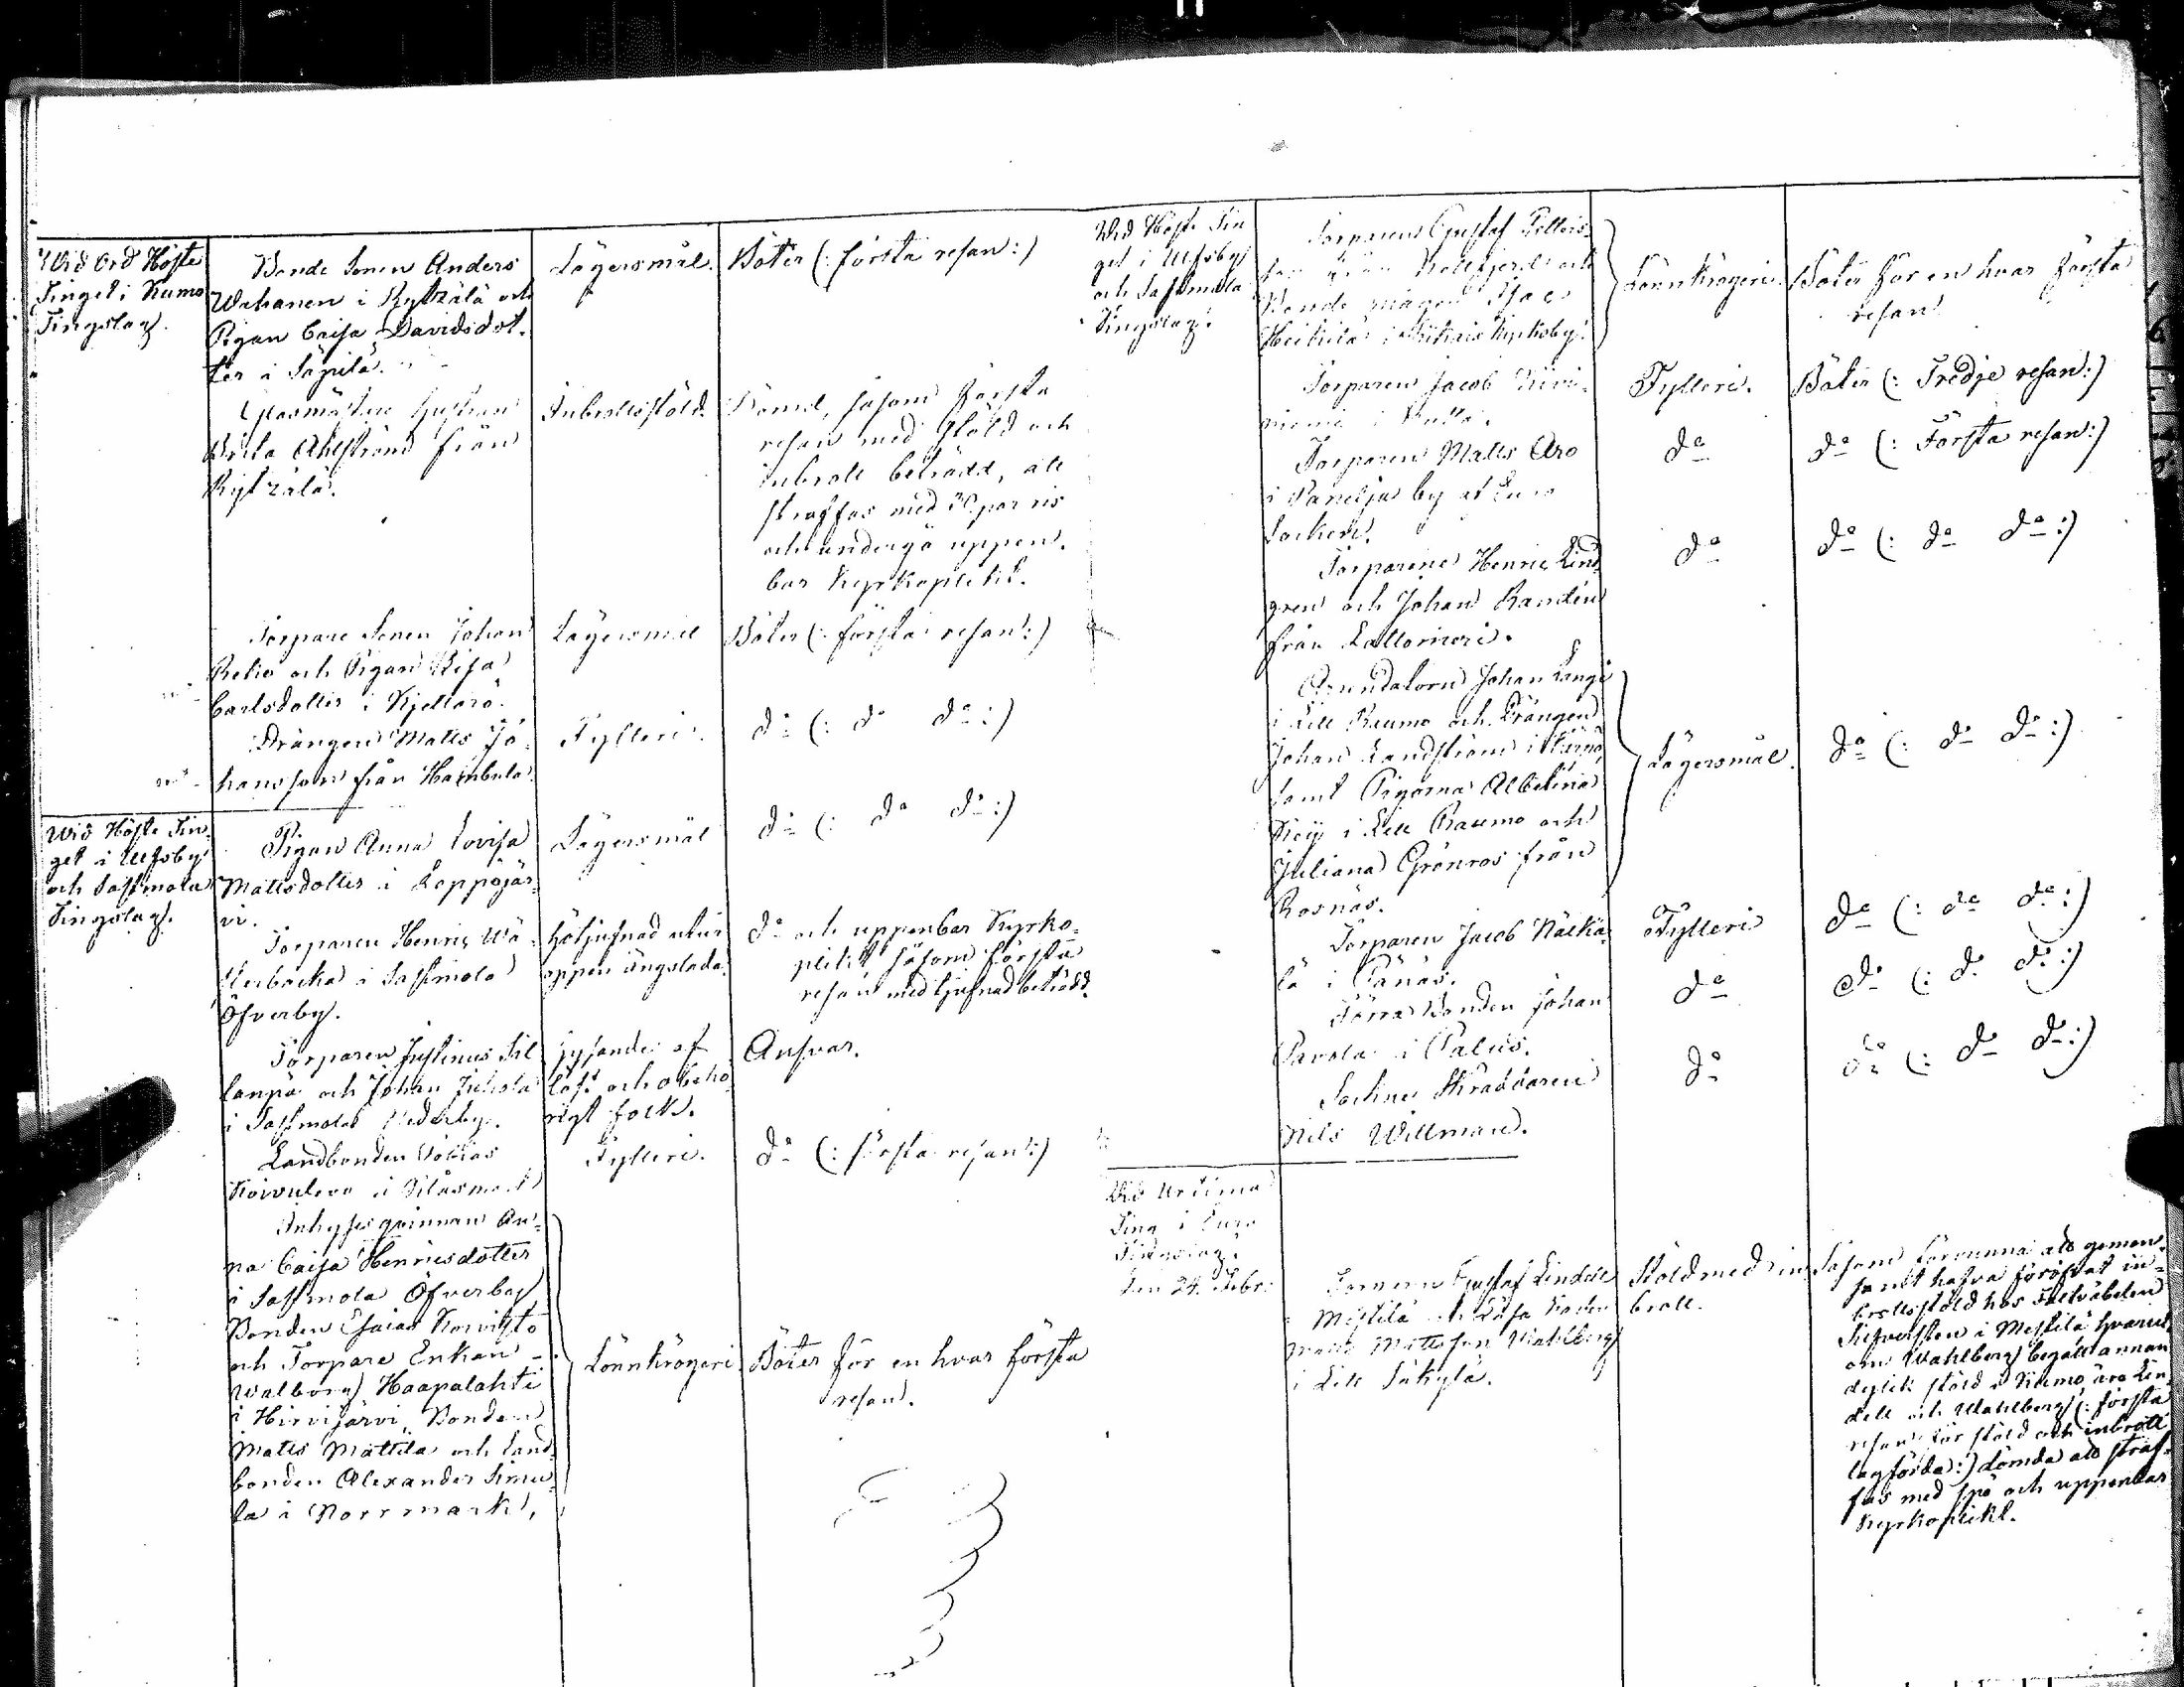 Vid Ord Höste
Tinget i Kumo
Tingslag.
Bonde Sonen Anders
Wahanen i Kyttälä och
Pigan Caisa Davidsdot-
ter i Säpilä.
Lägersmål.
Böter (: första resan :)
Glasmästare hustrun
Brita Ahlström från
Kyttälä.
Inbrottsstöld.
Dömd, såsom första
resan med stöld och
inbrott beträdd, att
straffas med par ris
och undergå uppen-
bar Kyrkoplikt.
Torpare Sonen Johan
och Pigan Lisa
Carlsdotter i
Lägersmål
Böter (: första resan :)
Drängen Matts Jo-
hansson från Hambula.
Fylleri.
do (: do do :)
Wid Höste Tin-
get i Ulfsby
och Sastmola
Tingslag.
Pigan Anna Lovisa
Mattsdotter i Leppäjär-
vi.
Lägersmål
do (: do do :)
Torparen Henric Wä-
sterbacka i Sastmola
Öfverby.
Hötjufnad utur
oppen ängslada.
do och uppenbar Kyrko-
plikt såsom första
resan med tjufnad beträdd.
Torparen Justinus Sil
lanpä och Johan Juhola
i Sastmola Nederby.
hysande af
löst och obehö-
rigt folk.
Ansvar.
Landbonden Tobias
Koivulova i
Fylleri.
do (: första resan :)
Inhyses qvinnan An-
na Caisa Henricsdotter
i Sastmola Öfverby
Bonden Esaias Koivisto
och Torpare Enkan
Walborg Haapalahti
i Hirvijärvi, Bonden
Matts Mattila och Land-
bonden Alexander Simu-
la i Norrmark,
Lönnkrögeri
Böter för en hvar första
resan.
Wid Höste Tin
get i Ulfsby
och Sastmola
Tingslag.
Torparen Gustaf
från och
Bonde mågen Isac
Heikkilä i Kyrkoby.
Lönnkrögeri.
Böter för en hvar första
resan
Torparen Jacob Kivi-
niemi i
Fylleri.
Böter (: Tredje resan :)
Torparen Matts Aro
i Paneljа by af Eura
Socken.
do
do (: Första resan :)
Torparene Henric Lind-
gren och Johan Randén
från Lattomeri.
do
do (: do do :)
Arrendatorn Johan Lange
i Lill Raumo och Drängen
Johan Landström i
samt Pigorna Albertina
i Lill Raumo och
Juliana Grönroos från
Rosnäs.
Lägersmål.
do (: do do :)
Torparen Jacob
lä i Pänäs.
Fylleri
do (: do do :)
Förra Bonden Johan
Pavola i Palus.
do
do (: do do :)
Sockne Skräddaren
Nils Willman.
do
do (: do do :)
Vid Urtima
Ting i Eura
Tingslag
den 24. Febr.
Gustaf Lindell
i Mestilä och
Mattsson Wahlberg
i Lill Säkylä.
Stöld med in-
brott.
Såsom förvunna att gemen-
samt hafva föröfvat in-
brottsstöld hos Fältväbelen
Silfversten i Mestilä hvarut-
om Wahlberg begått annan
dylik stöld i Kumo äro Lin-
dell och Wahlberg (: första
resan för stöld och inbrott
lagförda :) dömda att straf-
fas med spö och uppenbar
Kyrkoplikt.